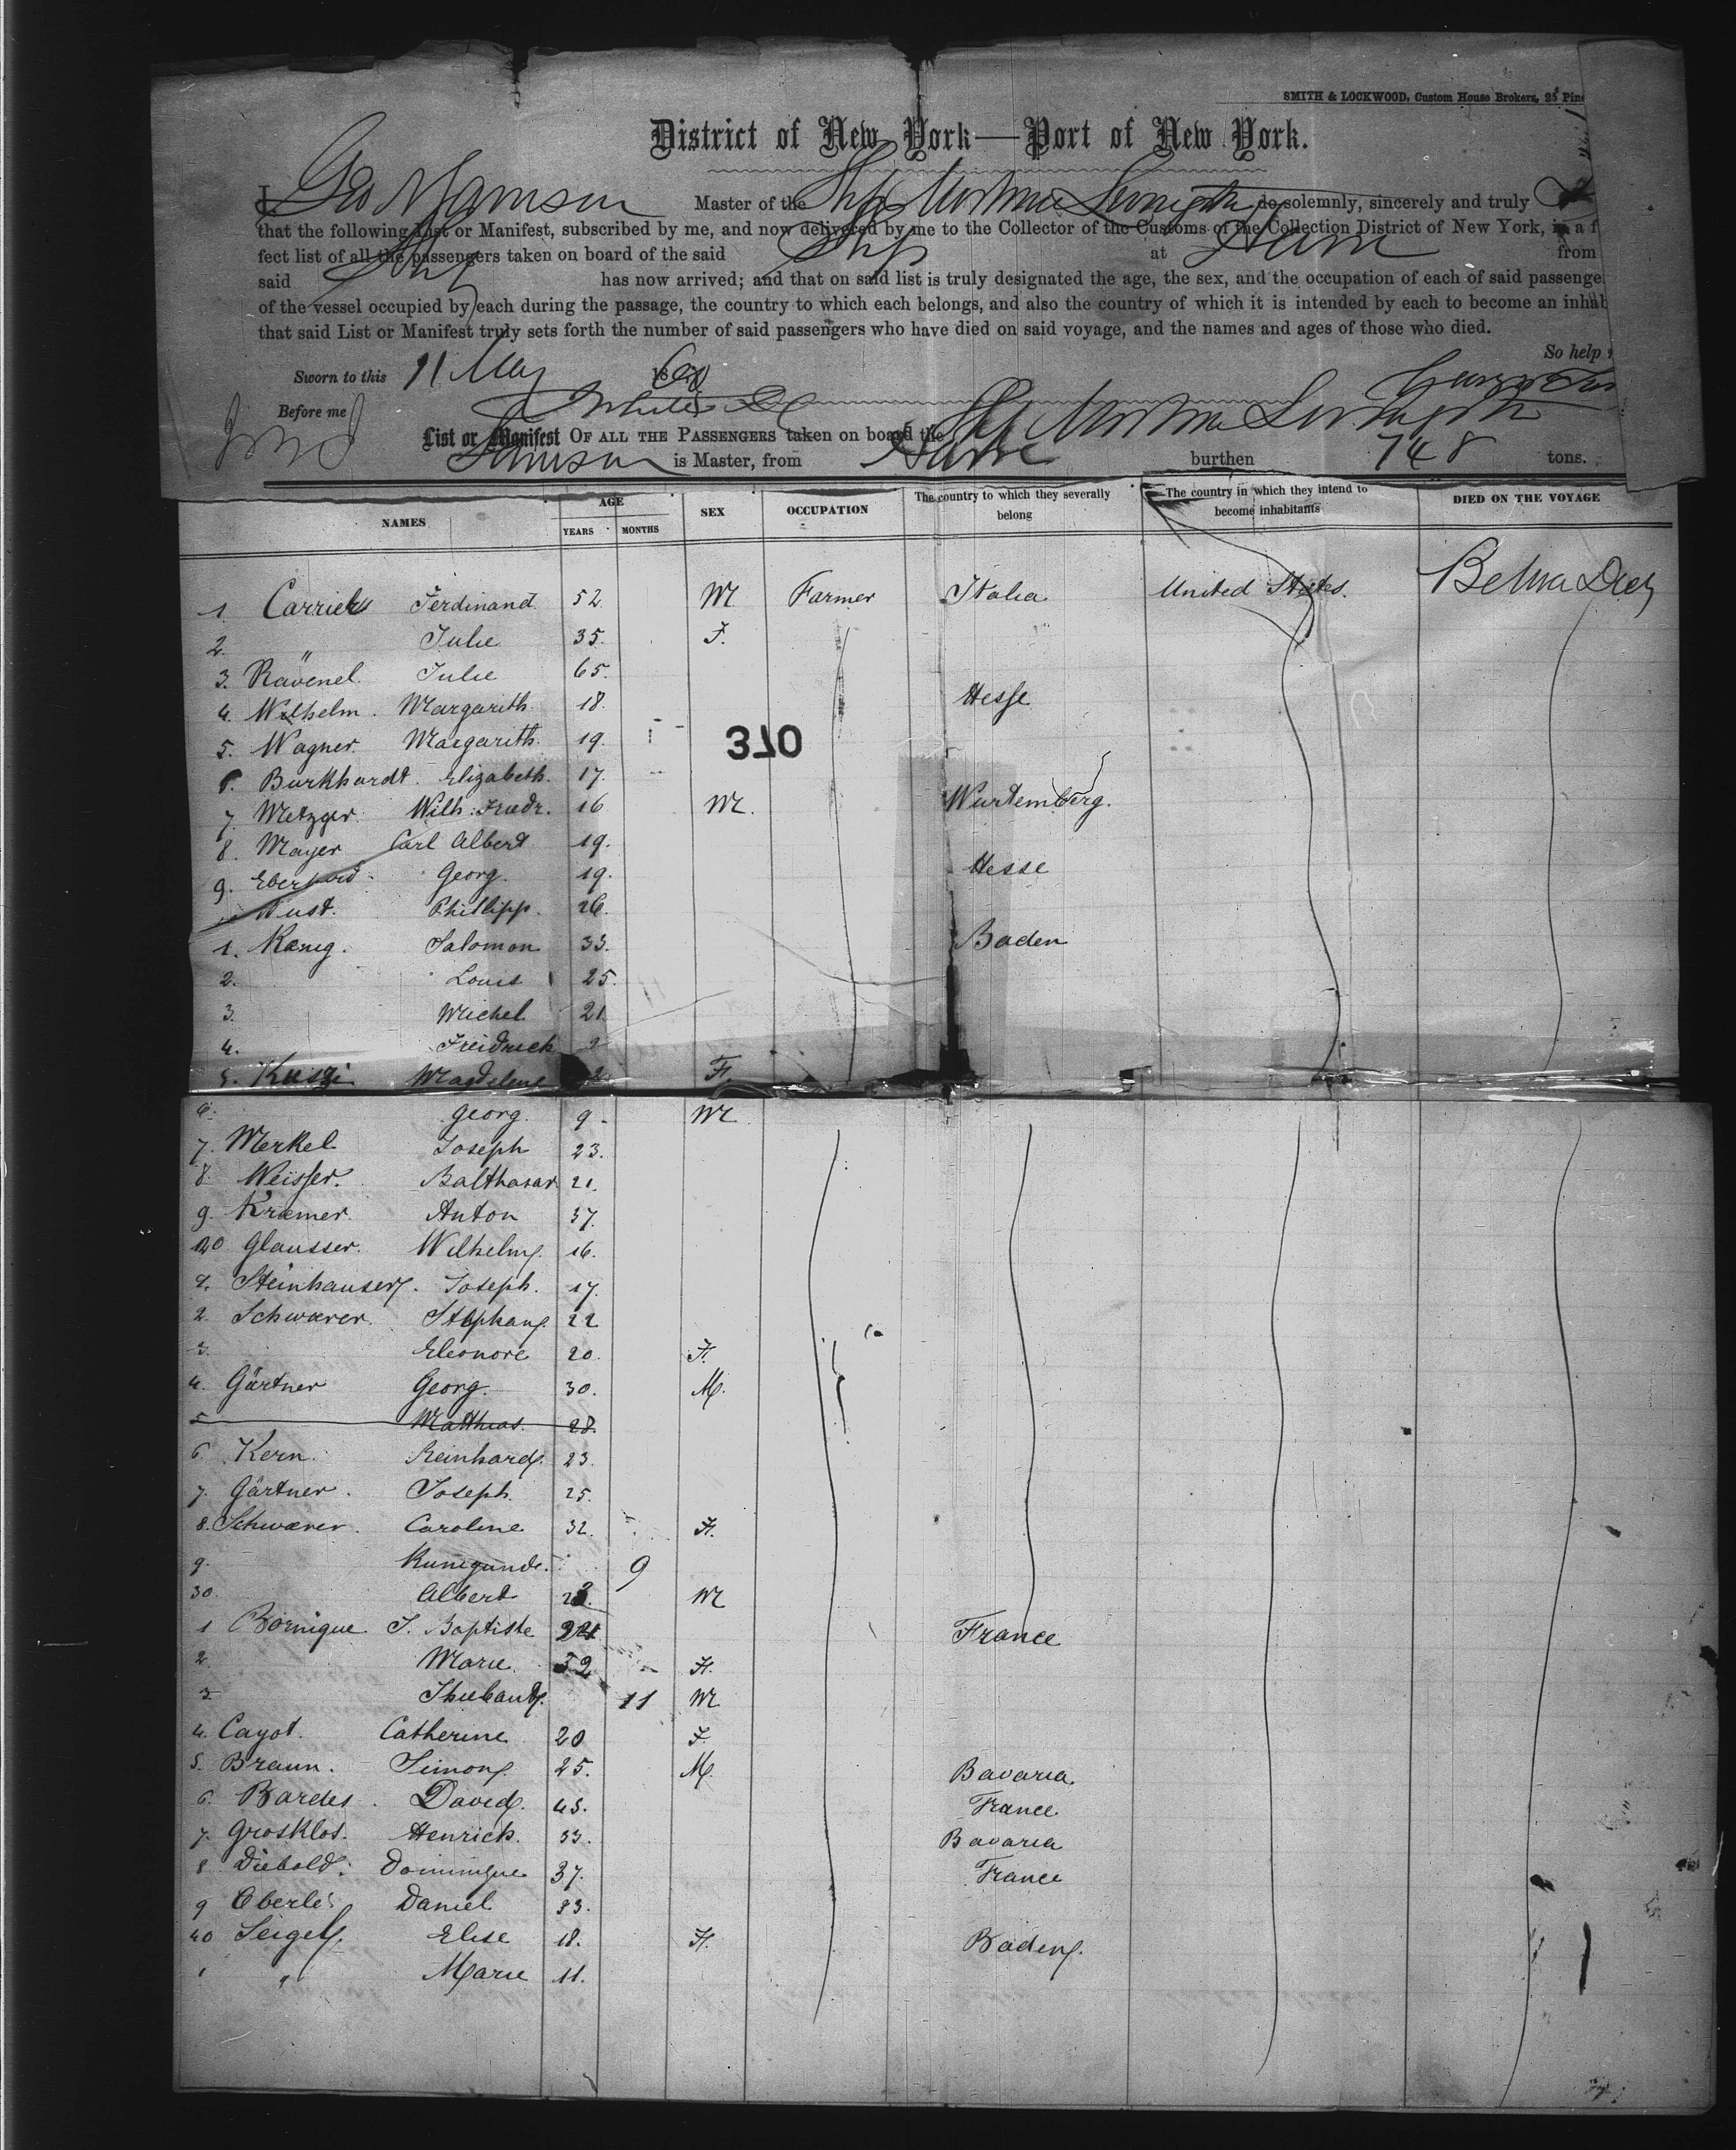 SMITH & LOCKWOOD, Custom House Brokers, 25 Pine
District of New York—Port of New York.
I, Geo Master of the Ship do solemnly, sincerely and truly
that the following List or Manifest, subscribed by me, and now delivered by me to the Collector of the Customs of the Collection District of New York, is a f
fect list of all the passengers taken on board of the said Ship at Havre from
said Ship has now arrived; and that on said list is truly designated the age, the sex, and the occupation of each of said passenge
of the vessel occupied by each during the passage, the country to which each belongs, and also the country of which it is intended by each to become an inhab
that said List or Manifest truly sets forth the number of said passengers who have died on said voyage, and the names and ages of those who died.
So help
Sworn to this 11 May 1860
Before me
List or Manifest OF ALL THE PASSENGERS taken on board the Ship
is Master, from Havre burthen 748 tons.
NAMES AGE YEARS MONTHS SEX OCCUPATION The country to which they severally belong The country in which they intend to become inhabitants DIED ON THE VOYAGE
1. Carriel Ferdinand 52. M Farmer Italia United States.
2. " Julie 35. F.
3. Ravenel. Julie 65.
4. Wilhelm. Margarith. 18. Hesse
5. Wagner. Margarith. 19.
370
6. Burkhardt. Elizabeth. 17.
7. Metzger. Wilh: Friedr. 16 M. Wurtemberg.
8. Mayer Carl Albert 19.
9. Eberhard Georg. 19. Hesse
Philipp. 26.
1. Kœnig. Salomon 33. Baden
2. Louis 25.
3. Michel 21.
4. Freidrich
5. Magdelene F.
6. Georg. 9. M
7. Merkel Joseph 23.
8. Weisser. Balthasar 21.
9. Kræmer. Anton 37.
20 Glausser. Wilhelm. 16.
1. Steinhauser. Joseph. 17.
2. Schwærer. Stephan. 22
3. Eleonore 20. F.
4. Gärtner Georg. 30. M.
5 Matthias. 28.
6. Kern. Reinhard. 23.
7. Gärtner. Joseph. 25.
8. Schwærer. Caroline 32. F.
9. Kunegunde. 9
30. Albert M
1 Bornique J. Baptiste France
2. Marie 32 F.
3. Thiebaud. 11 M
4. Cayot. Catherine 20 F.
5. Braun. Simon. 25. M. Bavaria.
6. Bardes. David. 45. France.
7. Grosklos. Henrich. 33. Bavaria
8. Diebold. Dominique 37. France
9 Oberlé. Daniel 33.
40 Seigel. Elise 18. F. Baden.
1 " Marie 11.